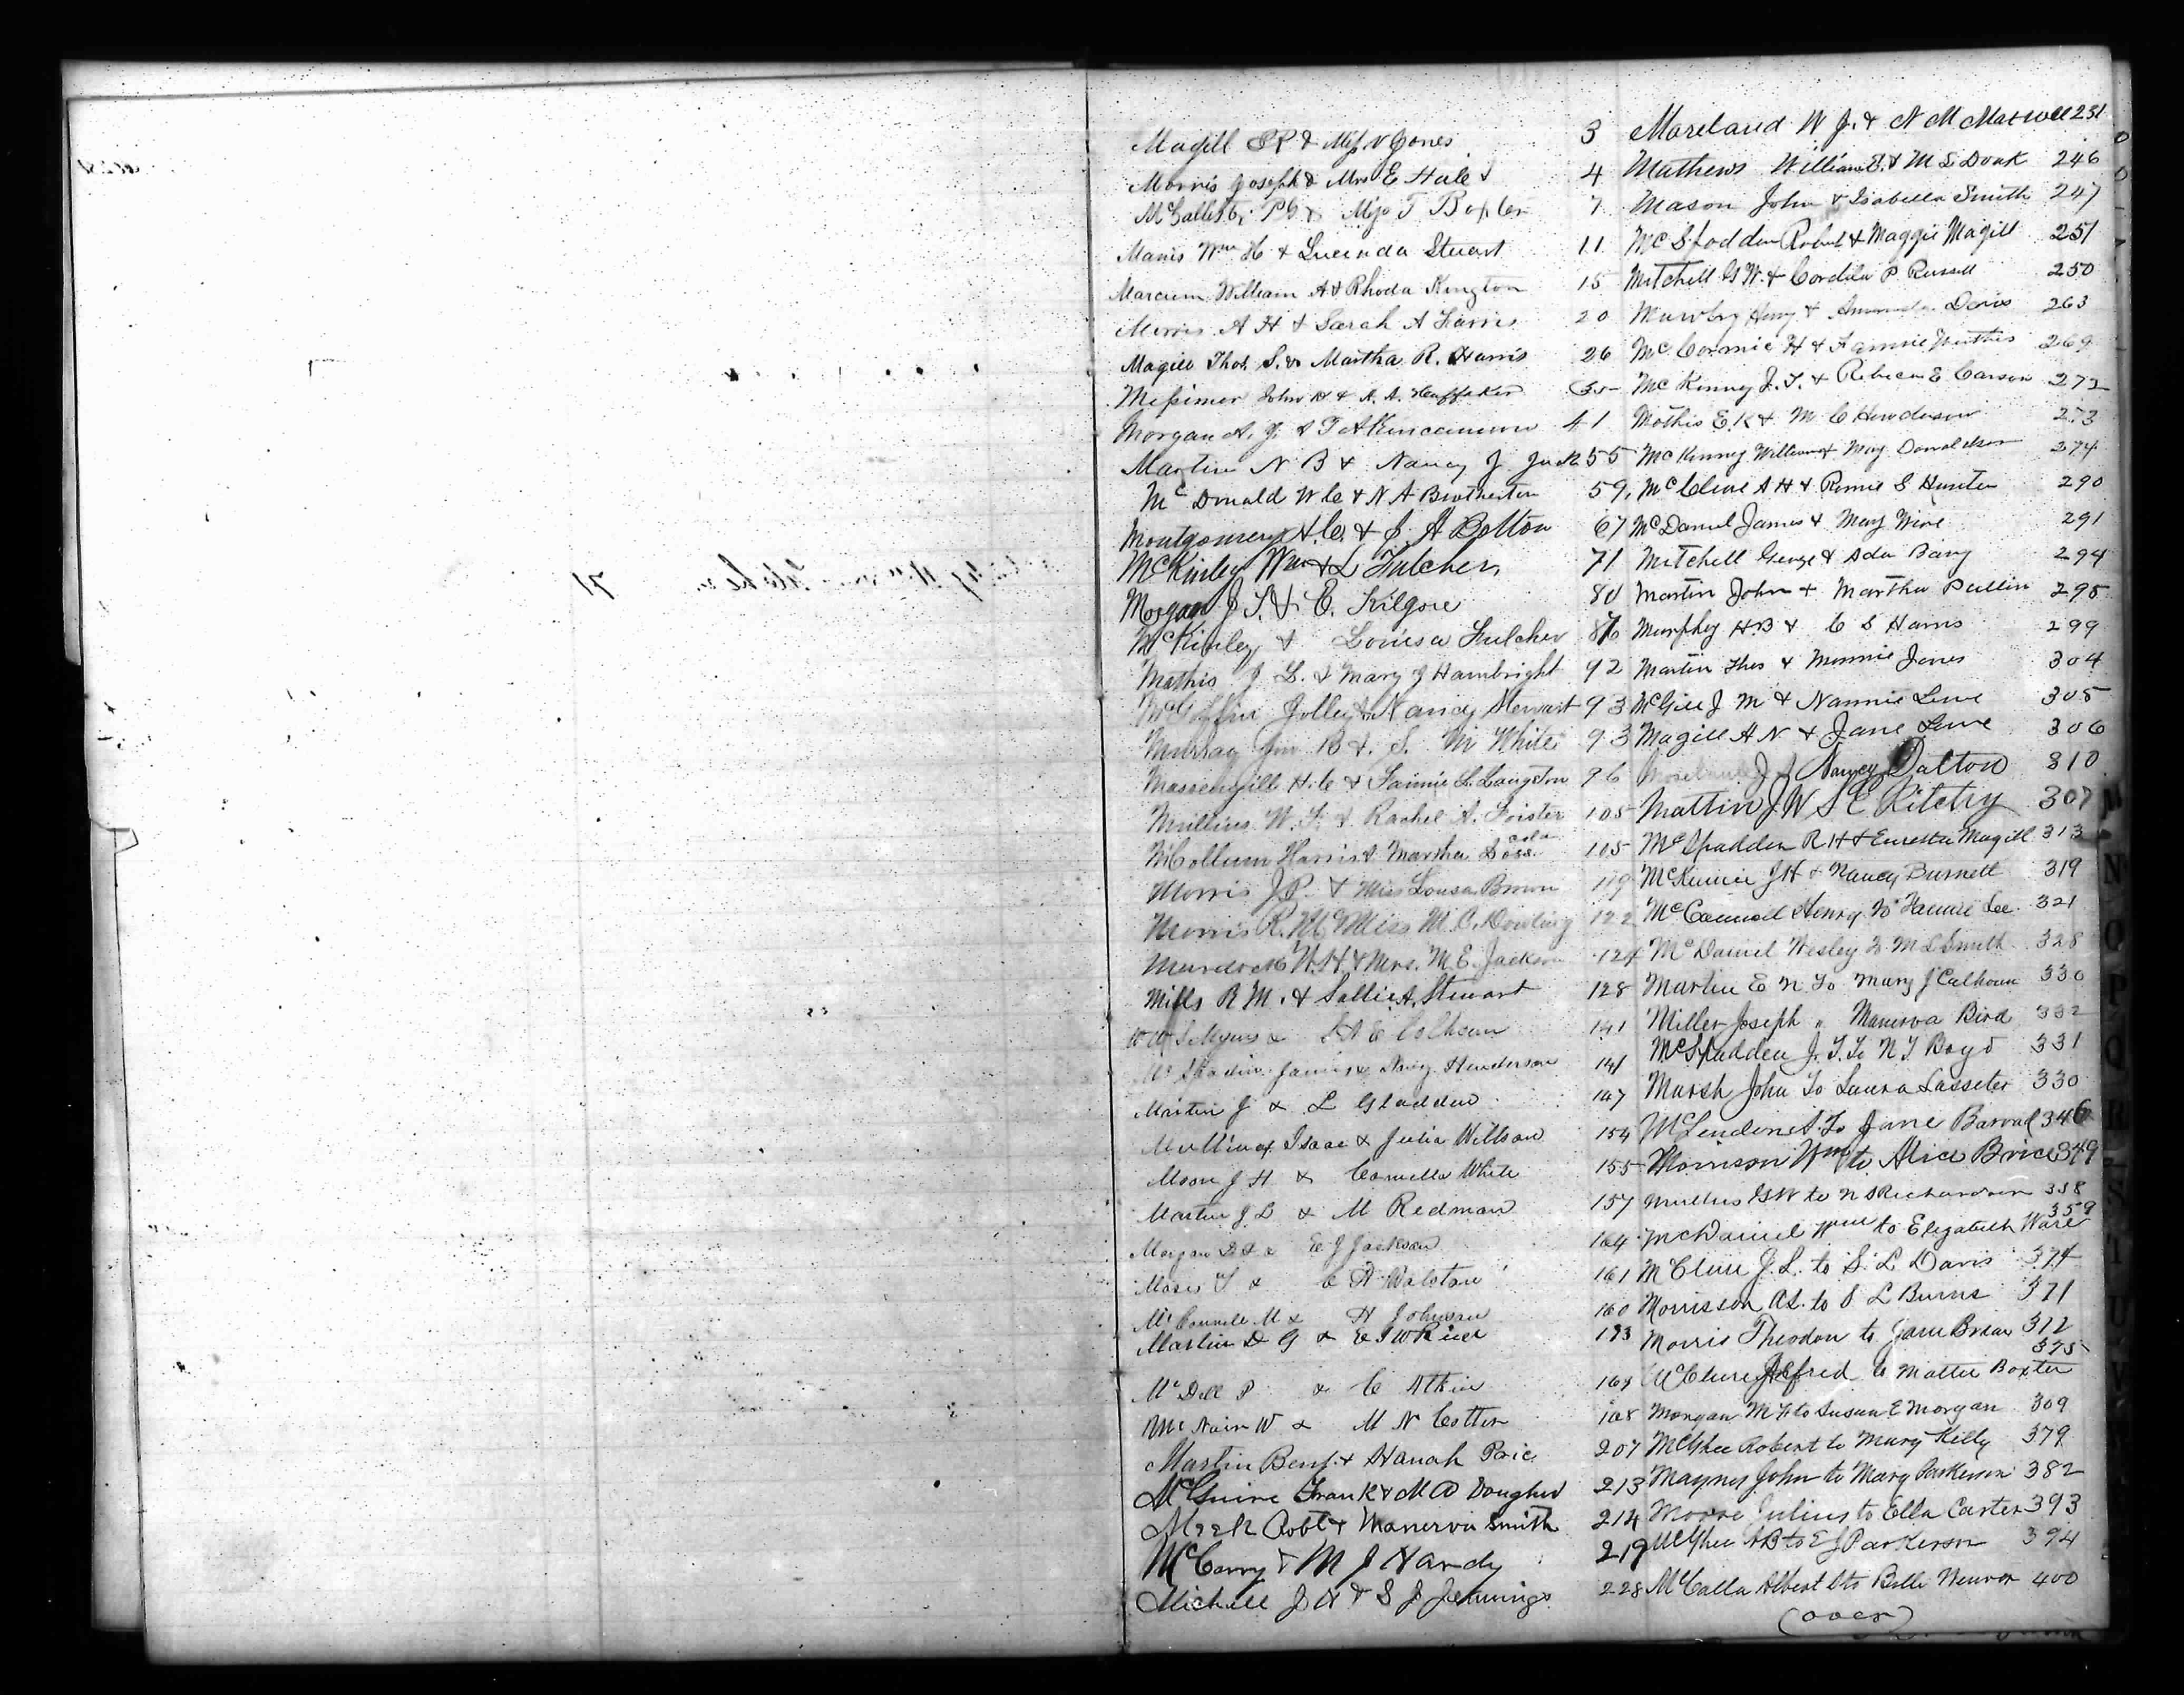 Magill S R & Miss N Jones 3
Morris Joseph & Mrs E Hale 4
McCallister P G & Miss T Boxler 7
Manis Wm H & Lucinda Stuart 11
Marcum William A & Rhoda Kington 15
Morris A H & Sarah A Farris 20
Magill Thos. S. & Martha R. Harris 26
Messimer John H & A. A. Huffaker 35
Morgan A. J. & T A Kincannon 41
Martin N B & Nancy J Jack 55
McDonald W C & N A Brotherton 59
Montgomery H. C. & S. A Bolton 67
McKinley Wm & L Fulcher 71
Morgan J. S. & E. Kilgore 80
McKinley & Louisa Fulcher 86
Mathis J L. & Mary J Hambright 92
McGoffin Jolley & Nancy Stewart 93
Murray Jno B & S. M White 93
Massengill H. C & Fannie L. Langston 96
Mullins W. F. & Rachel A. Foister 105
McCollum Harris & Martha Doss cold 105
Morris J. P. & Miss Lousa Brown 119
Morris R. M & Miss M. C. Dowling 122
Murdock W. H & Mrs. M. E. Jackson 124
Mills R M. & Sallie A. Stewart 128
W S Myers & S A E Colhoun 141
McSpadin James & Henderson 141
Martin J & L Gladden 147
Mullinax Isaac & Julia Willson 154
Moon J H & Cornelia White 155
Martin J L & M Redman 157
Morgan & E J Jackson 164
Moses T & C A Walston 161
McConnell M & H Johnson 160
Martin D G & E J W Rice 193
McDell P & C Atkin
McNair W & M N Cotter 168
Martin Benj. & Hanah Price 207
McGuire Frank & M A Doughed 213
Meek Robt & Manerva Smith 214
McCarry & M J Hardy 219
Michell J N & S J Jennings 228
Moreland W J. & N M Maxwell 231
Mathews William E. & M L Doak 246
Mason John & Isabella Smith 247
McSpadden Robert & Maggie Magill 251
Mitchell G W. & Cordelia P Russell 250
Mawbry Henry & Amanda Davis 263
McCormic H & Fannie 269
McKinney J. T. & Rebecca E Carson 272
Mathis E. K & M C Henderson 273
McKinney William & May Donaldson 274
McClure A H & Romie S Hunter 290
McDaniel James & May Wire 291
Mitchell George & Ada Barry 294
Martin John & Martha Pullin 295
Murphey H. B & C S Harris 299
Martin Thos & Minnie Jones 304
McGill J M & Nannie Lowe 305
Magill A N & Jane Lowe 306
Moreland J & Nancy Dalton 310
Mattin J W S E Ritchy 307
McSpadden R H & Euretta Magill 313
McKinnie J H & Nancy Burnett 319
McConnell Henry to Fannie Lee 321
McDaniel Wesley to M L Smith 328
Martin E N To Mary J Calhoun 330
Miller Joseph " Manerva Bird 332
McSpadden J. T. To N T Boyd 331
Marsh John To Laura Lasseter 330
McLendon A. To Jane Barnad 346
Morrison Wm to Alice Brice 349
Mullins G W to N S Richardson 358
McDaniel Wm to Elizabeth Ware 359
McClure J. L. to S. L Davis 374
Morrisson A L. to S L Burns 371
Morris Theodon to Jane Brian 312
McClure Alfred to Mattie Boxter 375
Morgan M F to Susan E Morgan 309
McGhee Robert to Mary Kelly 379
Maynes John to Mary Parkerson 382
Moore Julius to Ella Carter 393
McGhee A B to E J Parkerson 394
McCalla Albert C to Belle Neuron 400
(over)
M
N
O
P
Q
R
S
T
U
V